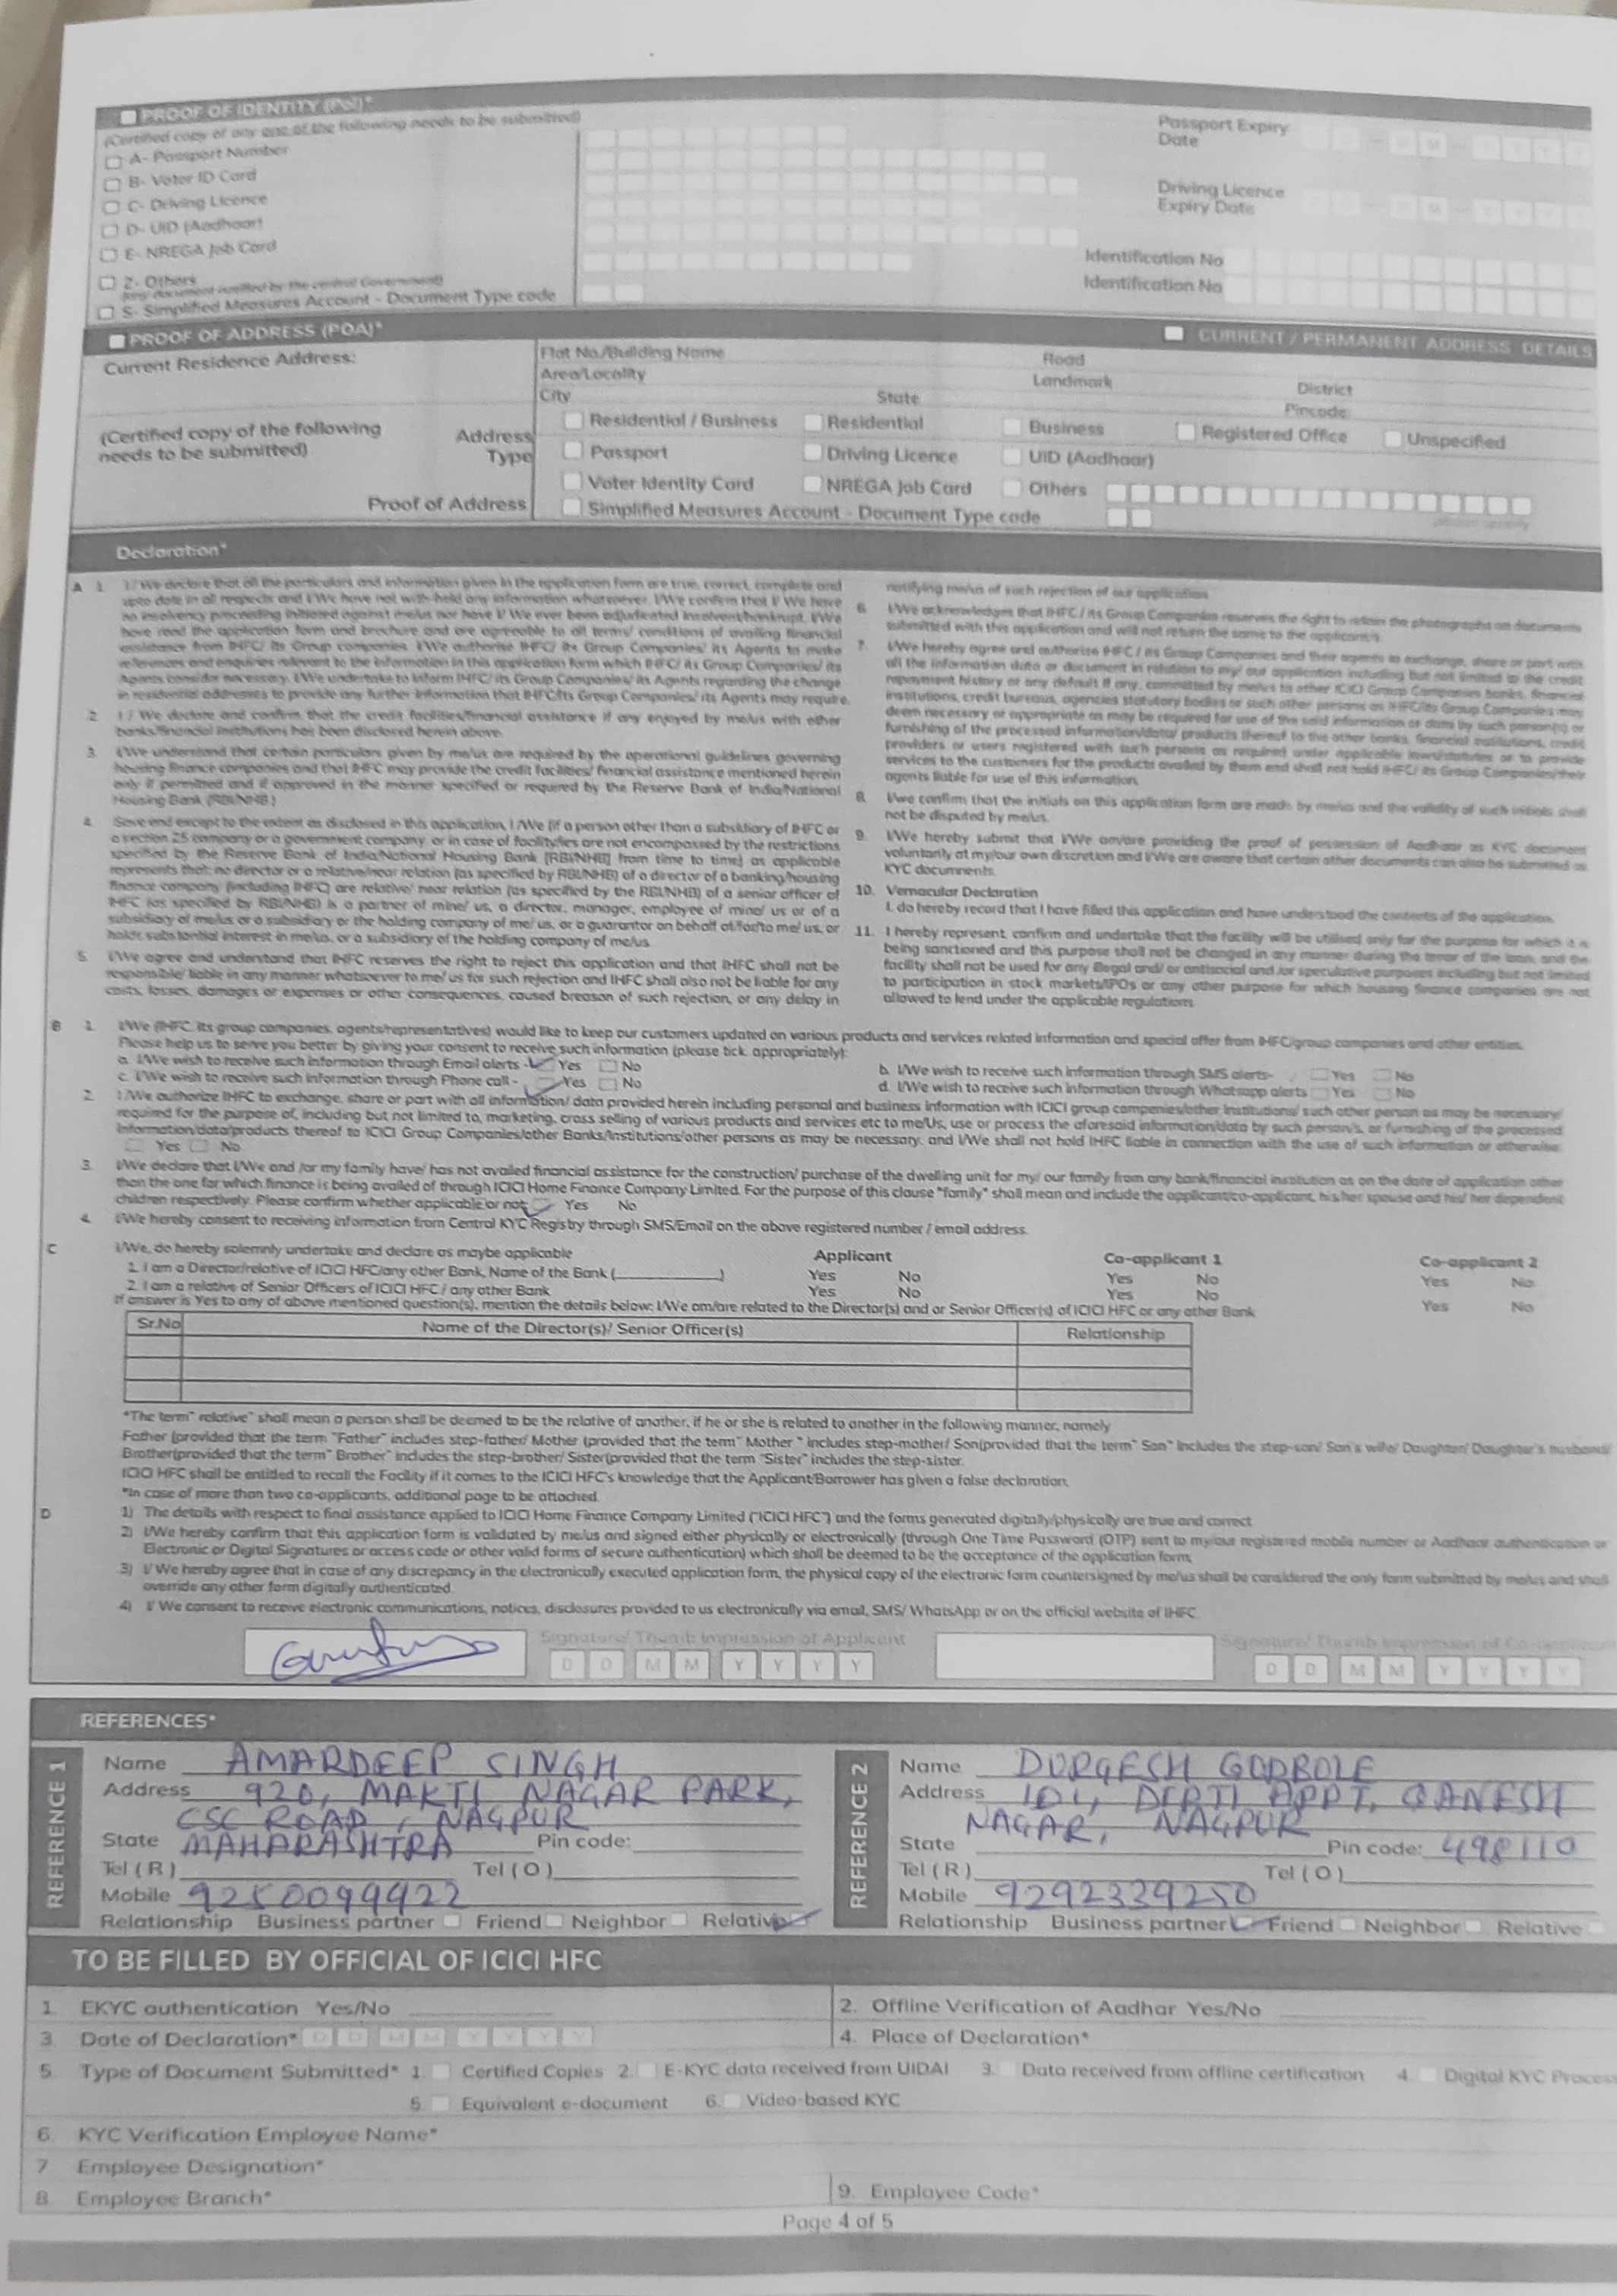 PROOF OF IDENTITY (PoI)*
(Certified copy of any one of the following needs to be submitted)
A- Passport Number
Passport Expiry Date
B- Voter ID Card
C- Driving Licence
Driving Licence Expiry Date
D- UID (Aadhaar)
E- NREGA Job Card
Z- Others
Identification No
(any document notified by the central Government)
S- Simplified Measures Account - Document Type code
Identification No
PROOF OF ADDRESS (POA)*
CURRENT / PERMANENT ADDRESS DETAILS
Current Residence Address:
Flat No./Building Name
Road
Area/Locality
Landmark
District
City
State
Pincode
(Certified copy of the following needs to be submitted)
Address Type
Residential / Business
Residential
Business
Registered Office
Unspecified
Passport
Driving Licence
UID (Aadhaar)
Proof of Address
Voter Identity Card
NREGA Job Card
Others
Simplified Measures Account - Document Type code
please specify
Declaration*
A 1. I / We declare that all the particulars and information given in the application form are true, correct, complete and
upto date in all respects and I/We have not with-held any information whatsoever. I/We confirm that I/ We have
no insolvency proceeding initiated against me/us nor have I/ We ever been adjudicated insolvent/bankrupt. I/We
have read the application form and brochure and are agreeable to all terms/ conditions of availing financial
assistance from IHFC/ its Group companies. I/We authorise IHFC/ its Group Companies/ its Agents to make
references and enquiries relevant to the information in this application form which IHFC/ its Group Companies/ its
Agents consider necessary. I/We undertake to inform IHFC/ its Group Companies/ its Agents regarding the change
in residential addresses to provide any further information that IHFC/its Group Companies/ its Agents may require.
2. I / We declare and confirm that the credit facilities/financial assistance if any enjoyed by me/us with other
banks/financial institutions has been disclosed herein above.
3. I/We understand that certain particulars given by me/us are required by the operational guidelines governing
housing finance companies and that IHFC may provide the credit facilities/ financial assistance mentioned herein
only if permitted and if approved in the manner specified or required by the Reserve Bank of India/National
Housing Bank (RBI/NHB.)
4. Save end except to the extent as disclosed in this application, I /We (if a person other than a subsidiary of IHFC or
a section 25 company or a government company, or in case of facility/ies are not encompassed by the restrictions
specified by the Reserve Bank of India/National Housing Bank [RBI/NHB] from time to time) as applicable
represents that: no director or a relative/near relation (as specified by RBI/NHB) of a director of a banking/housing
finance company (including IHFC) are relative/ near relation (as specified by the RBI/NHB) of a senior officer of
IHFC (as specified by RBI/NHB) is a partner of mine/ us, a director, manager, employee of mine/ us or of a
subsidiary of me/us or a subsidiary or the holding company of me/ us, or a guarantor on behalf of/for/to me/ us, or
holds substantial interest in me/us, or a subsidiary of the holding company of me/us.
5. I/We agree and understand that IHFC reserves the right to reject this application and that IHFC shall not be
responsible/ liable in any manner whatsoever to me/ us for such rejection and IHFC shall also not be liable for any
costs, losses, damages or expenses or other consequences, caused breason of such rejection, or any delay in
notifying me/us of such rejection of our application.
6. I/We acknowledges that IHFC / its Group Companies reserves the right to retain the photographs an documents
submitted with this application and will not return the same to the applicant/s.
7. I/We hereby agree and authorize IHFC / its Group Companies and their agents to exchange, share or part with
all the information data or document in relation to my/ our application including but not limited to the credit
repayment history or any default if any, committed by me/us to other ICICI Group Companies banks, financial
institutions, credit bureaus, agencies statutory bodies or such other persons as IHFC/its Group Companies may
deem necessary or appropriate as may be required for use of the said information or data by such person(s) or
furnishing of the processed information/data/ products thereof to the other banks, financial institutions, credit
providers or users registered with such persons as required under applicable laws/statutes or to provide
services to the customers for the products availed by them end shall not hold IHFC/ its Group Companies/their
agents liable for use of this information.
8. I/we confirm that the initials on this application form are made by me/us and the validity of such initials shall
not be disputed by me/us.
9. I/We hereby submit that I/We am/are providing the proof of possession of Aadhaar as KYC document
voluntarily at my/our own discretion and I/We are aware that certain other documents can also be submitted as
KYC documents.
10. Vernacular Declaration
I, do hereby record that I have filled this application and have understood the contents of the application.
11. I hereby represent, confirm and undertake that the facility will be utilised only for the purpose for which it is
being sanctioned and this purpose shall not be changed in any manner during the tenor of the loan, and the
facility shall not be used for any illegal and/ or antisocial and /or speculative purposes including but not limited
to participation in stock markets/IPOs or any other purpose for which housing finance companies are not
allowed to lend under the applicable regulations.
B 1. I/We (IHFC, its group companies, agents/representatives) would like to keep our customers updated on various products and services related information and special offer from IHFC/group companies and other entities.
Please help us to serve you better by giving your consent to receive such information (please tick appropriately):
a. I/We wish to receive such information through Email alerts - Yes No
b. I/We wish to receive such information through SMS alerts- Yes No
c. I/We wish to receive such information through Phone call - Yes No
d. I/We wish to receive such information through Whatsapp alerts Yes No
2. I /We authorize IHFC to exchange, share or part with all information/ data provided herein including personal and business information with ICICI group companies/other Institutions/ such other person as may be necessary/
required for the purpose of, including but not limited to, marketing, cross selling of various products and services etc to me/Us, use or process the aforesaid information/data by such person/s, or furnishing of the processed
information/data/products thereof to ICICI Group Companies/other Banks/Institutions/other persons as may be necessary; and I/We shall not hold IHFC liable in connection with the use of such information or otherwise.
Yes No
3. I/We declare that I/We and /or my family have/ has not availed financial assistance for the construction/ purchase of the dwelling unit for my/ our family from any bank/financial institution as on the date of application other
than the one for which finance is being availed of through ICICI Home Finance Company Limited. For the purpose of this clause "family" shall mean and include the applicant/co-applicant, his/her spouse and his/ her dependent
children respectively. Please confirm whether applicable or not: Yes No
4. I/We hereby consent to receiving information from Central KYC Registry through SMS/Email on the above registered number / email address.
C I/We, do hereby solemnly undertake and declare as maybe applicable
Applicant Co-applicant 1 Co-applicant 2
1. I am a Director/relative of ICICI HFC/any other Bank, Name of the Bank (____________) Yes No Yes No Yes No
2. I am a relative of Senior Officers of ICICI HFC / any other Bank Yes No Yes No Yes No
If answer is Yes to any of above mentioned question(s), mention the details below: I/We am/are related to the Director(s) and or Senior Officer(s) of ICICI HFC or any other Bank
Sr.No Name of the Director(s)/ Senior Officer(s) Relationship
*The term" relative" shall mean a person shall be deemed to be the relative of another, if he or she is related to another in the following manner, namely
Father (provided that the term "Father" includes step-father/ Mother (provided that the term" Mother " includes step-mother/ Son(provided that the term" Son" includes the step-son/ Son's wife/ Daughter/ Daughter's husband/
Brother(provided that the term" Brother" includes the step-brother/ Sister(provided that the term "Sister" includes the step-sister.
ICICI HFC shall be entitled to recall the Facility if it comes to the ICICI HFC's knowledge that the Applicant/Borrower has given a false declaration.
*In case of more than two co-applicants, additional page to be attached.
D 1) The details with respect to final assistance applied to ICICI Home Finance Company Limited ("ICICI HFC") and the forms generated digitally/physically are true and correct
2) I/We hereby confirm that this application form is validated by me/us and signed either physically or electronically (through One Time Password (OTP) sent to my/our registered mobile number or Aadhaar authentication or
Electronic or Digital Signatures or access code or other valid forms of secure authentication) which shall be deemed to be the acceptance of the application form;
3) I/ We hereby agree that in case of any discrepancy in the electronically executed application form, the physical copy of the electronic form countersigned by me/us shall be considered the only form submitted by me/us and shall
override any other form digitally authenticated.
4) I/ We consent to receive electronic communications, notices, disclosures provided to us electronically via email, SMS/ WhatsApp or on the official website of IHFC.
Signature/ Thumb Impression of Applicant
D D M M Y Y Y Y
Signature/ Thumb Impression of Co-applicant
D D M M Y Y Y Y
REFERENCES*
REFERENCE 1
Name AMARDEEP SINGH
Address 920, MAKTI NAGAR PARK,
CSC ROAD, NAGPUR
State MAHARASHTRA Pin code:
Tel ( R ) Tel ( O )
Mobile 9250099922
Relationship Business partner Friend Neighbor Relative
REFERENCE 2
Name DURGESH GODBOLE
Address 101, DEPTI APPT, GANESH
NAGAR, NAGPUR
State Pin code: 498110
Tel ( R ) Tel ( O )
Mobile 9292339250
Relationship Business partner Friend Neighbor Relative
TO BE FILLED BY OFFICIAL OF ICICI HFC
1. EKYC authentication Yes/No
2. Offline Verification of Aadhar Yes/No
3. Date of Declaration* D D M M Y Y Y Y
4. Place of Declaration*
5. Type of Document Submitted* 1. Certified Copies 2. E-KYC data received from UIDAI 3. Data received from offline certification 4. Digital KYC Process
5. Equivalent e-document 6. Video-based KYC
6. KYC Verification Employee Name*
7 Employee Designation*
8. Employee Branch*
9. Employee Code*
Page 4 of 5